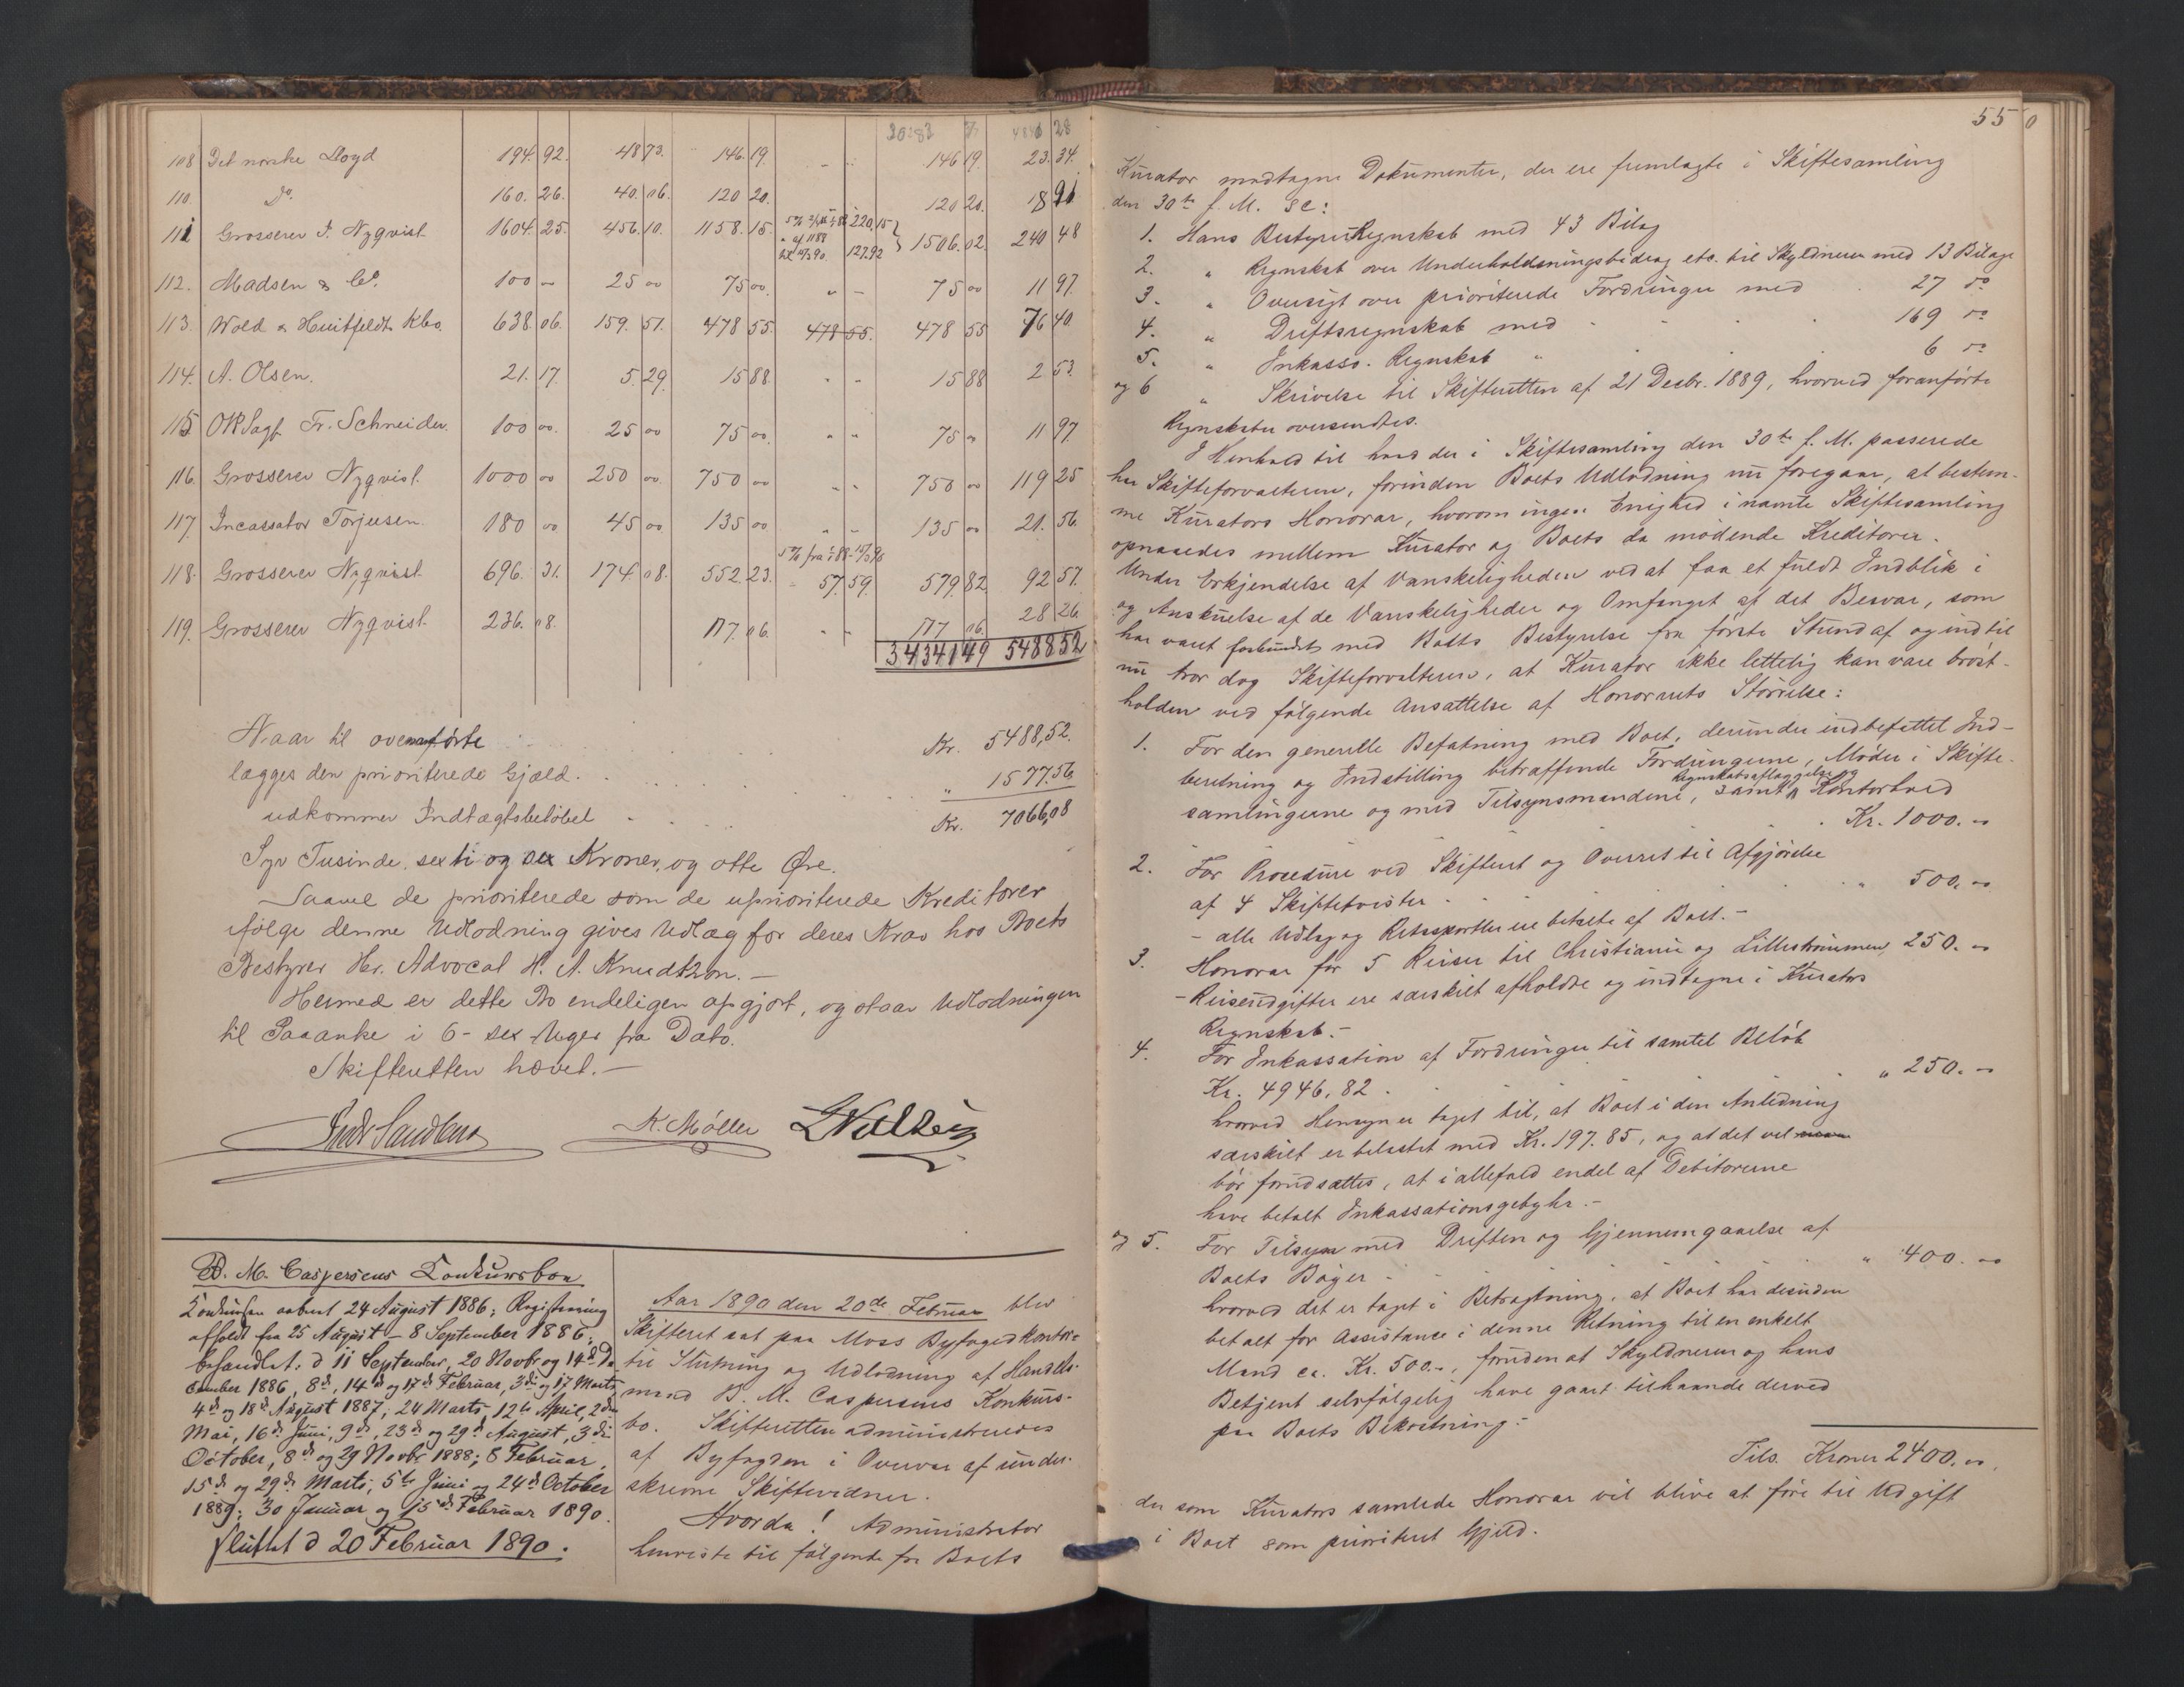 30:83 48 28
108 Det norske Lloyd 194. 92. 48 73. 146. 19. 146 19. 23. 34.
110. Do. 160. 26. 40. 06. 120 20. 120 20. 18 91
111 Grosserer J. Nyqvist 1604. 25. 456. 10. 1158. 15. 220,15 127.92 1506. 02. 240 48
112. Madsen & Co. 100 - 25 00 75 00. 75 00 11 97.
113. Wold & Huitfeldt Kbo. 638. 06. 159. 51. 478 55. 478 55. 478 55 76 40.
114. A. Olsen. 21. 17. 5. 29. 15 88. 15 88 2 53.
115. ORSagf. Fr. Schneider. 100 00. 25 00 75 00. 75 00 11 97
116. Grosserer Nyqvist. 1000 00 250 00. 750 00 750 00 119 25
117. Incassator Torjusen. 180 00 45 00. 135 00 135 00 21. 56.
118. Grosserer Nyqvist. 696. 31. 174 08. 552. 23. 5% fra 57. 59. 579. 82. 92 57.
119. Grosserer Nyqvist. 236. 08. 117. 06. 117 06. 28 26.
34341 49 5488 52
Naar til ovenanførte Kr. 5488,52.
lægges den prioriterede Gjæld. „ 1577.56
udkommer Indtægtsbeløbet Kr. 7066,08
Syv Tusinde, sexti og sex Kroner, og otte Øre.
Saavel de prioriterede som de uprioriterede Kreditorer
ifølge denne Udlodning gives Udlæg for deres Krav hos Boets
Bestyrer Hr. Advocat H. A. Knudtzon. —
Hermed er dette Bo endeligen opgjort, og staar Udlodningen
til Paaanke i 6 - sex Uger fra Dato.
Skifteretten hævet. —
Fredr Sandberg A. Møller
B. M. Caspersens Konkursbo
Konkursen aabnet 24 August 1886; Registrering
afholdt fra 25 August - 8 September 1886;
behandlet: d 11 September, 20 Novbr og 14de De-
cember 1886, 8de, 14de og 17de Februar, 3die og 17 Marts,
4de og 18de August 1887; 24 Marts, 12te April, 2den
Mai, 16de Juni, 9de, 23de og 29de August, 3die
October, 8de og 29 Novbr 1888; 8 Februar,
15de og 29de Marts, 5te Juni og 24de October
1889; 30 Januar og 15de Februar 1890.
sluttet d 20 Februar 1890.
Aar 1890 den 20de Februar blev
Skifteret sat paa Moss Byfogedkontor
til Slutning og Udlodning af Handels-
mand B. M. Caspersens Konkurs-
bo. Skifteretten administreredes
af Byfogden i Overvær af under-
skrevne Skiftevidner.
Hvorda! Administrator
henviste til følgende fra Boets
55 0
Kurator modtagne Dokumenter, der ere fremlagte i Skiftesamling
den 30te f. M. sc:
1. Hans BestyrerRegnskab med 43 Bilag
2. „ Regnskab over Underholdningsbidrag etc. til Skyldneren med 13 Bilage
3. „ Oversigt over prioriterede Fordringer med 27 do
4. „ Driftsregnskab med 169 do
5. „ Inkasso-Regnskab „ 6 do
og 6 „ Skrivelse til Skifteretten af 21 Desbr. 1889, hvorved foranførte
Regnskaber oversendtes.
I Henhold til hvad der i Skiftesamling den 30te f. M. passerede
har Skifteforvalteren, forinden Boets Udlodning nu foregaar, at bestem-
me Kurators Honorar, hvorom ingen Enighed i nævnte Skiftesamling
opnaaedes mellem Kurator og Boets da mødende Kreditorer.
Under Erkjendelse af Vanskeligheden ved at faa et fuldt Indblik i
og Anskuelse af de Vanskeligheder og Omfanget af det Besvær, som
har været forbundet med Boets Bestyrelse fra første Stund af og indtil
nu tror dog Skifteforvalteren, at Kurator ikke lettelig kan være brøst-
holden ved følgende Ansættelse af Honorarets Størrelse:
1. For den generelle Befatning med Boet, derunder indbefattet Ind-
beretning og Indstilling betræffende Fordringerne, Møder i Skifte-
samlingerne og med Tilsynsmændene, samt Regnskabsaflæggelse og Kontorhold
Kr. 1000. -
2. For Procedure ved Skifteret og Overret til Afgjørelse
af 4 Skiftetvister „ 500. -
- alle Udlæg og Retssportler ere betalte af Boet. -
3. Honorar for 5 Reiser til Christiania og Lillestrømmen, 250. -
- Reiseudgifter ere særskilt afholdte og indtagne i Kurators
Regnskab. -
4. For Inkassation af Fordringer til samlet Beløb
Kr. 4946,82. „ 250. -
hvorved Hensyn er taget til, at Boet i den Anledning
særskilt er belastet med Kr. 197. 85, og at det vel
bør forudsættes, at i allefald endel af Debitorerne
have betalt Inkassationsgebyhr. -
og 5. For Tilsyn med Driften og Gjennemgaaelse af
Boets Bøger „ 400. -
hvorved det er taget i Betragtning, at Boet har desuden
betalt for Assistance i denne Retning til en enkelt
Mand ca. Kr. 500.-, foruden at Skyldneren og hans
Betjent selvfølgelig have gaaet tilhaande derved
paa Boets Bekostning. -
Tils. Kroner 2400. -
der som Kurators samlede Honorar vil blive at føre til Udgift
i Boet som prioriteret Gjæld.